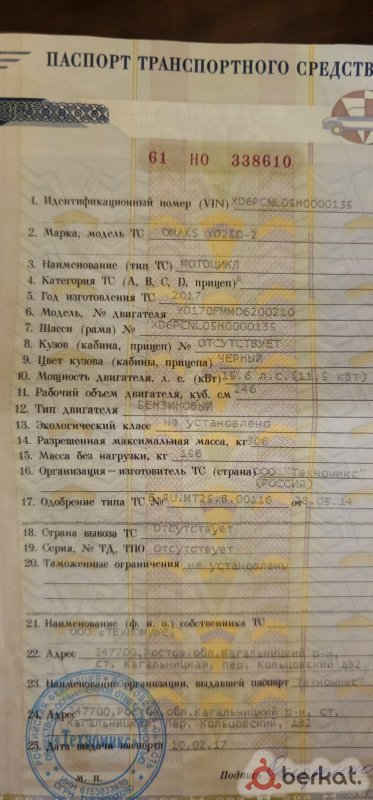 ПАСПОРТ ТРАНСПОРТНОГО СРЕДСТВ
61 НО 338610
1. Идентификационный номер (VIN) XD6PCNL05H0000135
2. Марка, модель ТС OMAKS YD250-2
3. Наименование (тип ТС) МОТОЦИКЛ
4. Категория ТС (А, В, С, D, прицеп) А
5. Год изготовления ТС 2017
6. Модель, № двигателя YD170FMMD6200210
7. Шасси (рама) № XD6PCNL05H0000135
8. Кузов (кабина, прицеп) № ОТСУТСТВУЕТ
9. Цвет кузова (кабины, прицепа) ЧЕРНЫЙ
10. Мощность двигателя, л. с. (кВт) 15.6 л.с.(11.5 кВт)
11. Рабочий объем двигателя, куб. см 246
12. Тип двигателя БЕНЗИНОВЫЙ
13. Экологический класс не установлено
14. Разрешенная максимальная масса, кг 306
15. Масса без нагрузки, кг 156
16. Организация—изготовитель ТС (страна) ООО "Техномикс" (РОССИЯ)
17. Одобрение типа ТС № от .05.14
18. Страна вывоза ТС Отсутствует
19. Серия, № ТД, ТПО Отсутствует
20. Таможенные ограничения не установлены
21. Наименование (ф. и. о.) собственника ТС
ООО «ТЕХНОМИКС»
22. Адрес 347700,Ростов.обл.Кагальницкий р-н,
ст. Кагальницкая, пер. Кольцовский д82
23. Наименование организации, выдавшей паспорт "Техномикс"
24. Адрес 347700,Ростов.обл. Кагальницкий р-н, ст.
Кагальницкая, пер. Кольцовский, д82
25. Дата выдачи паспорта 10.02.17
Техномикс
М. П.
Подпись
berkat.